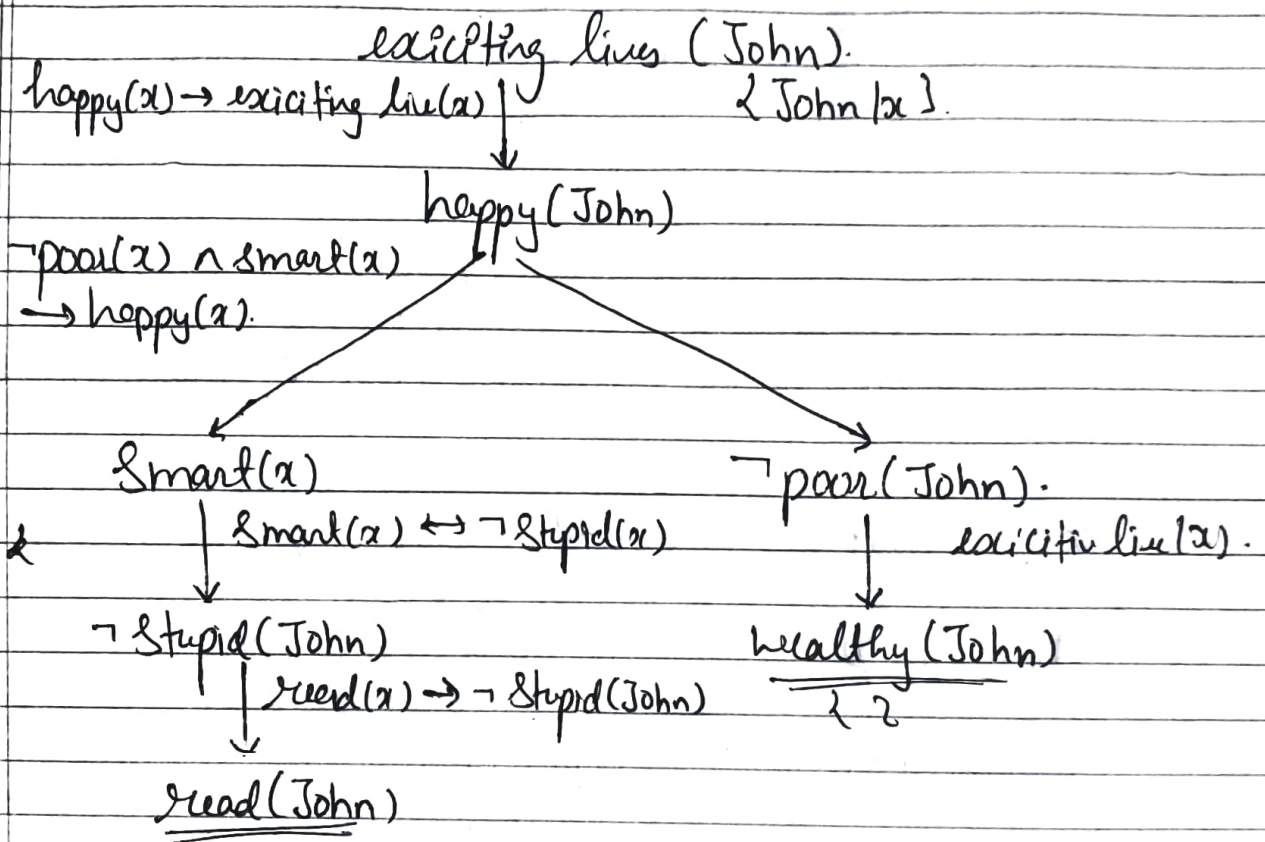 exiciting lives (John).
happy(x) → exiciting live(x) {John/x}.
happy(John)
¬poor(x) ∧ smart(x)
→ happy(x).
Smart(x) ¬poor(John).
Smart(x) ↔ ¬Stupid(x) exicitiv live(x).
¬Stupid(John) wealthy(John)
read(x) → ¬Stupid(John) { }
read(John)